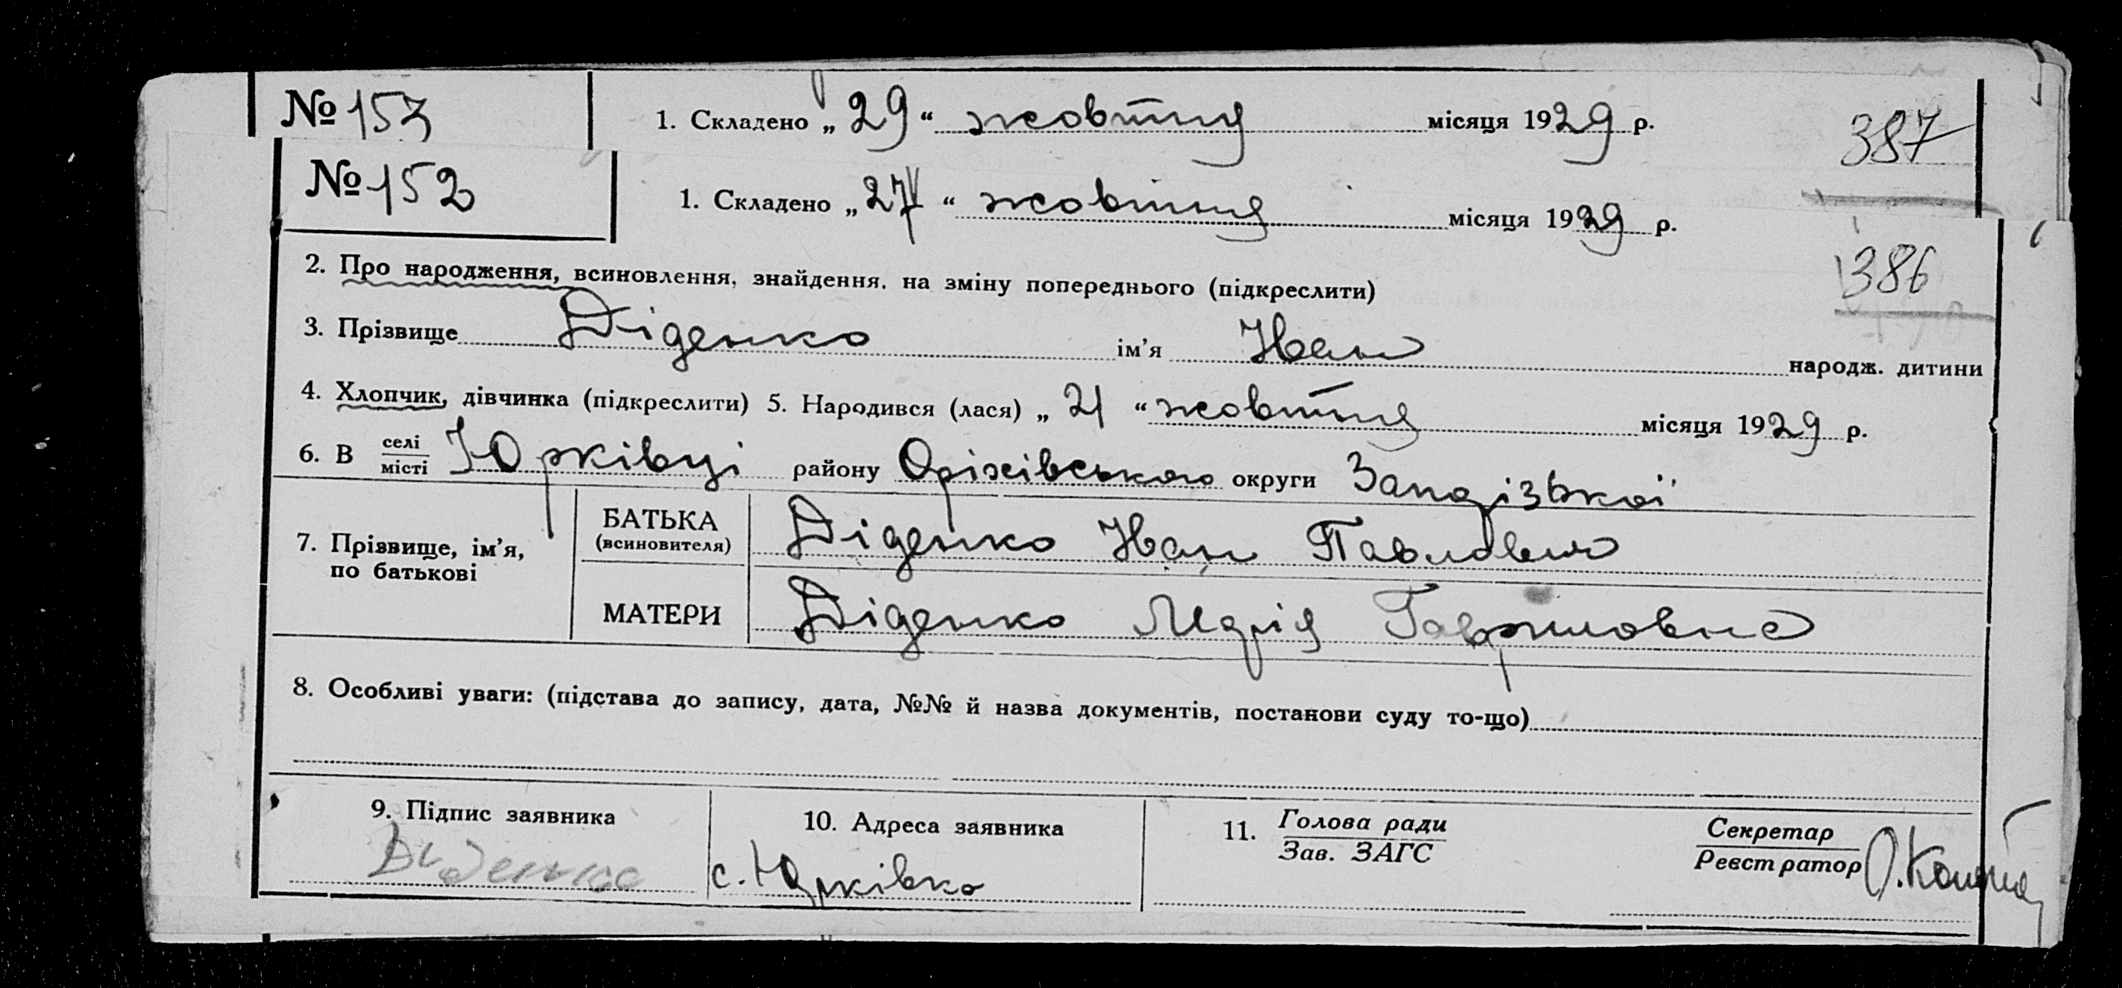 № 153 1. Складено „ 29 “ жовтня місяця 1929 р. 387
№ 152 1. Складено „ 27 “ жовтня місяця 1929 р.
386
2. Про народження, всиновлення, знайдення, на зміну попереднього (підкреслити)
3. Прізвище Діденко ім’я Иван народж. дитини
4. Хлопчик, дівчинка (підкреслити) 5. Народився (лася) „ 21 “ жовтня місяця 1929 р.
6. В селі місті Юрківці району Оріхівського округи Запорізької
7. Прізвище, ім’я, по батькові
БАТЬКА (всиновителя) Діденко Иван Павлович
МАТЕРИ Діденко Марія Гавриловна
8. Особливі уваги: (підстава до запису, дата, №№ й назва документів, постанови суду то-що)
9. Підпис заявника 10. Адреса заявника 11. Голова ради Зав. ЗАГС Секретар Реєстратор
Диденко с. Юрківка